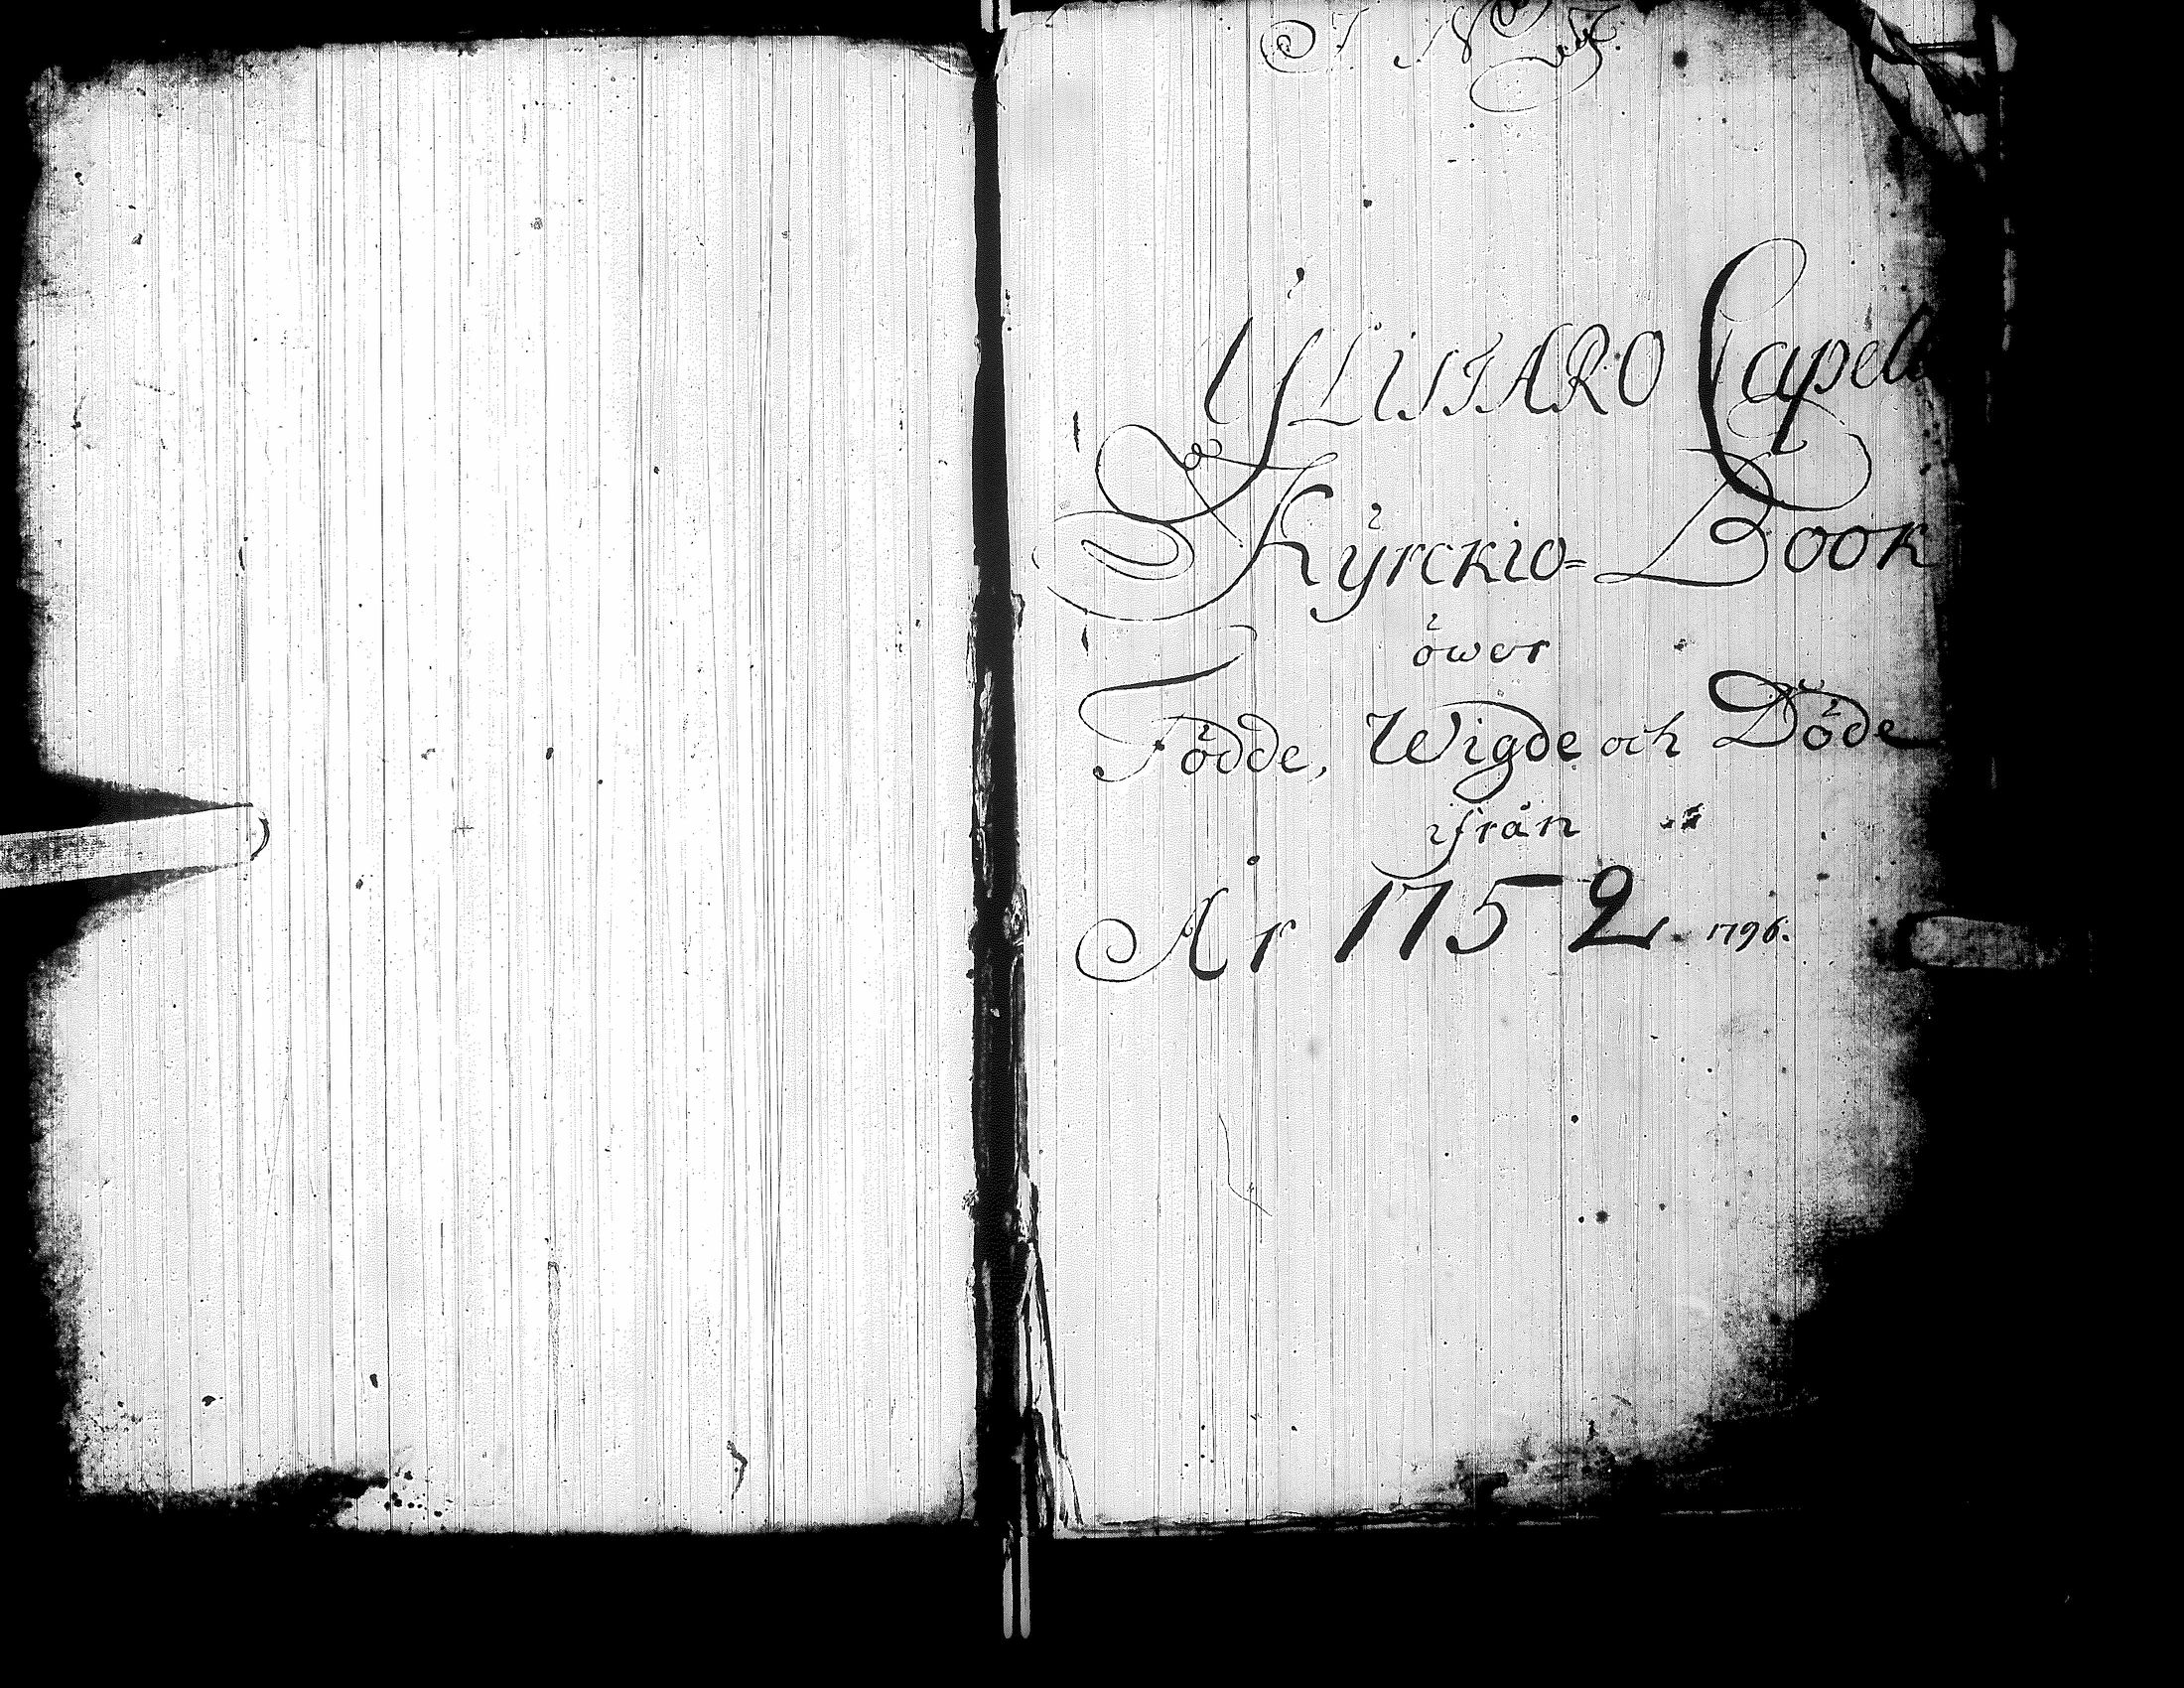 YLISTARO Capell
Kÿrckio=Book
öwer
Födde, Wigde och Döde
ifrån
År 1752. 1796.